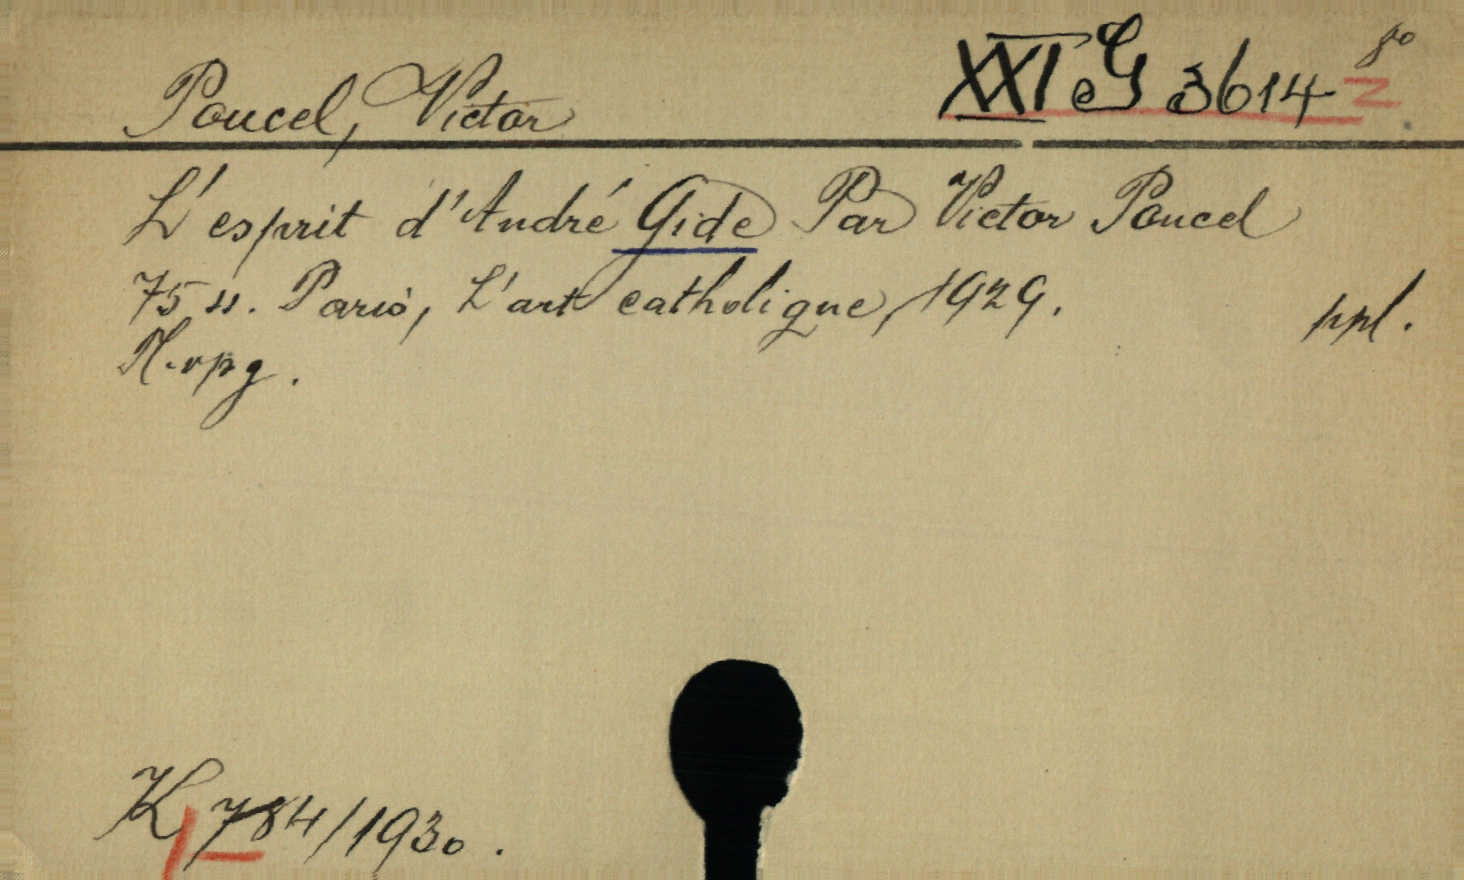 XXI G 3614 8°
Poucel, Victor
L'esprit d'André Gide Par Victor Poucel
75 s. Paris, L'art catholique, 1929.
ppl.
K 784/1930.